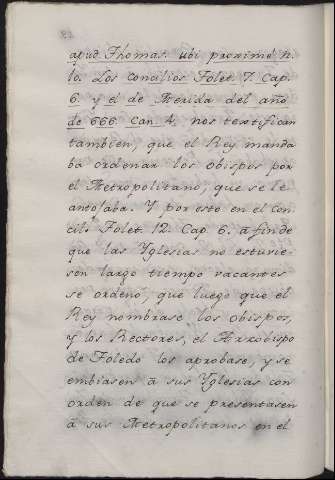 apud Thomas. ubi proxime n.
10. Los Concilios Tolet. 7. Cap.
6. y el de Merida del año
de 666. Can. 4. nos textifican
tambien, que el Rey manda
ba ordenar los obispos por
el Metropolitano, que se le
antojaba. Y por esto en el con
cilo Tolet. 12. Cap. 6. a fin de
que las Yglesias no estuvie-
sen largo tiempo vacantes
se ordenó, que luego que el
Rey nombrase los obispos,
y los Rectores, el Arzobispo
de Toledo los aprobase, y se
embiasen à sus Yglesias con
orden de que se presentasen
à sus Metropolitanos en el